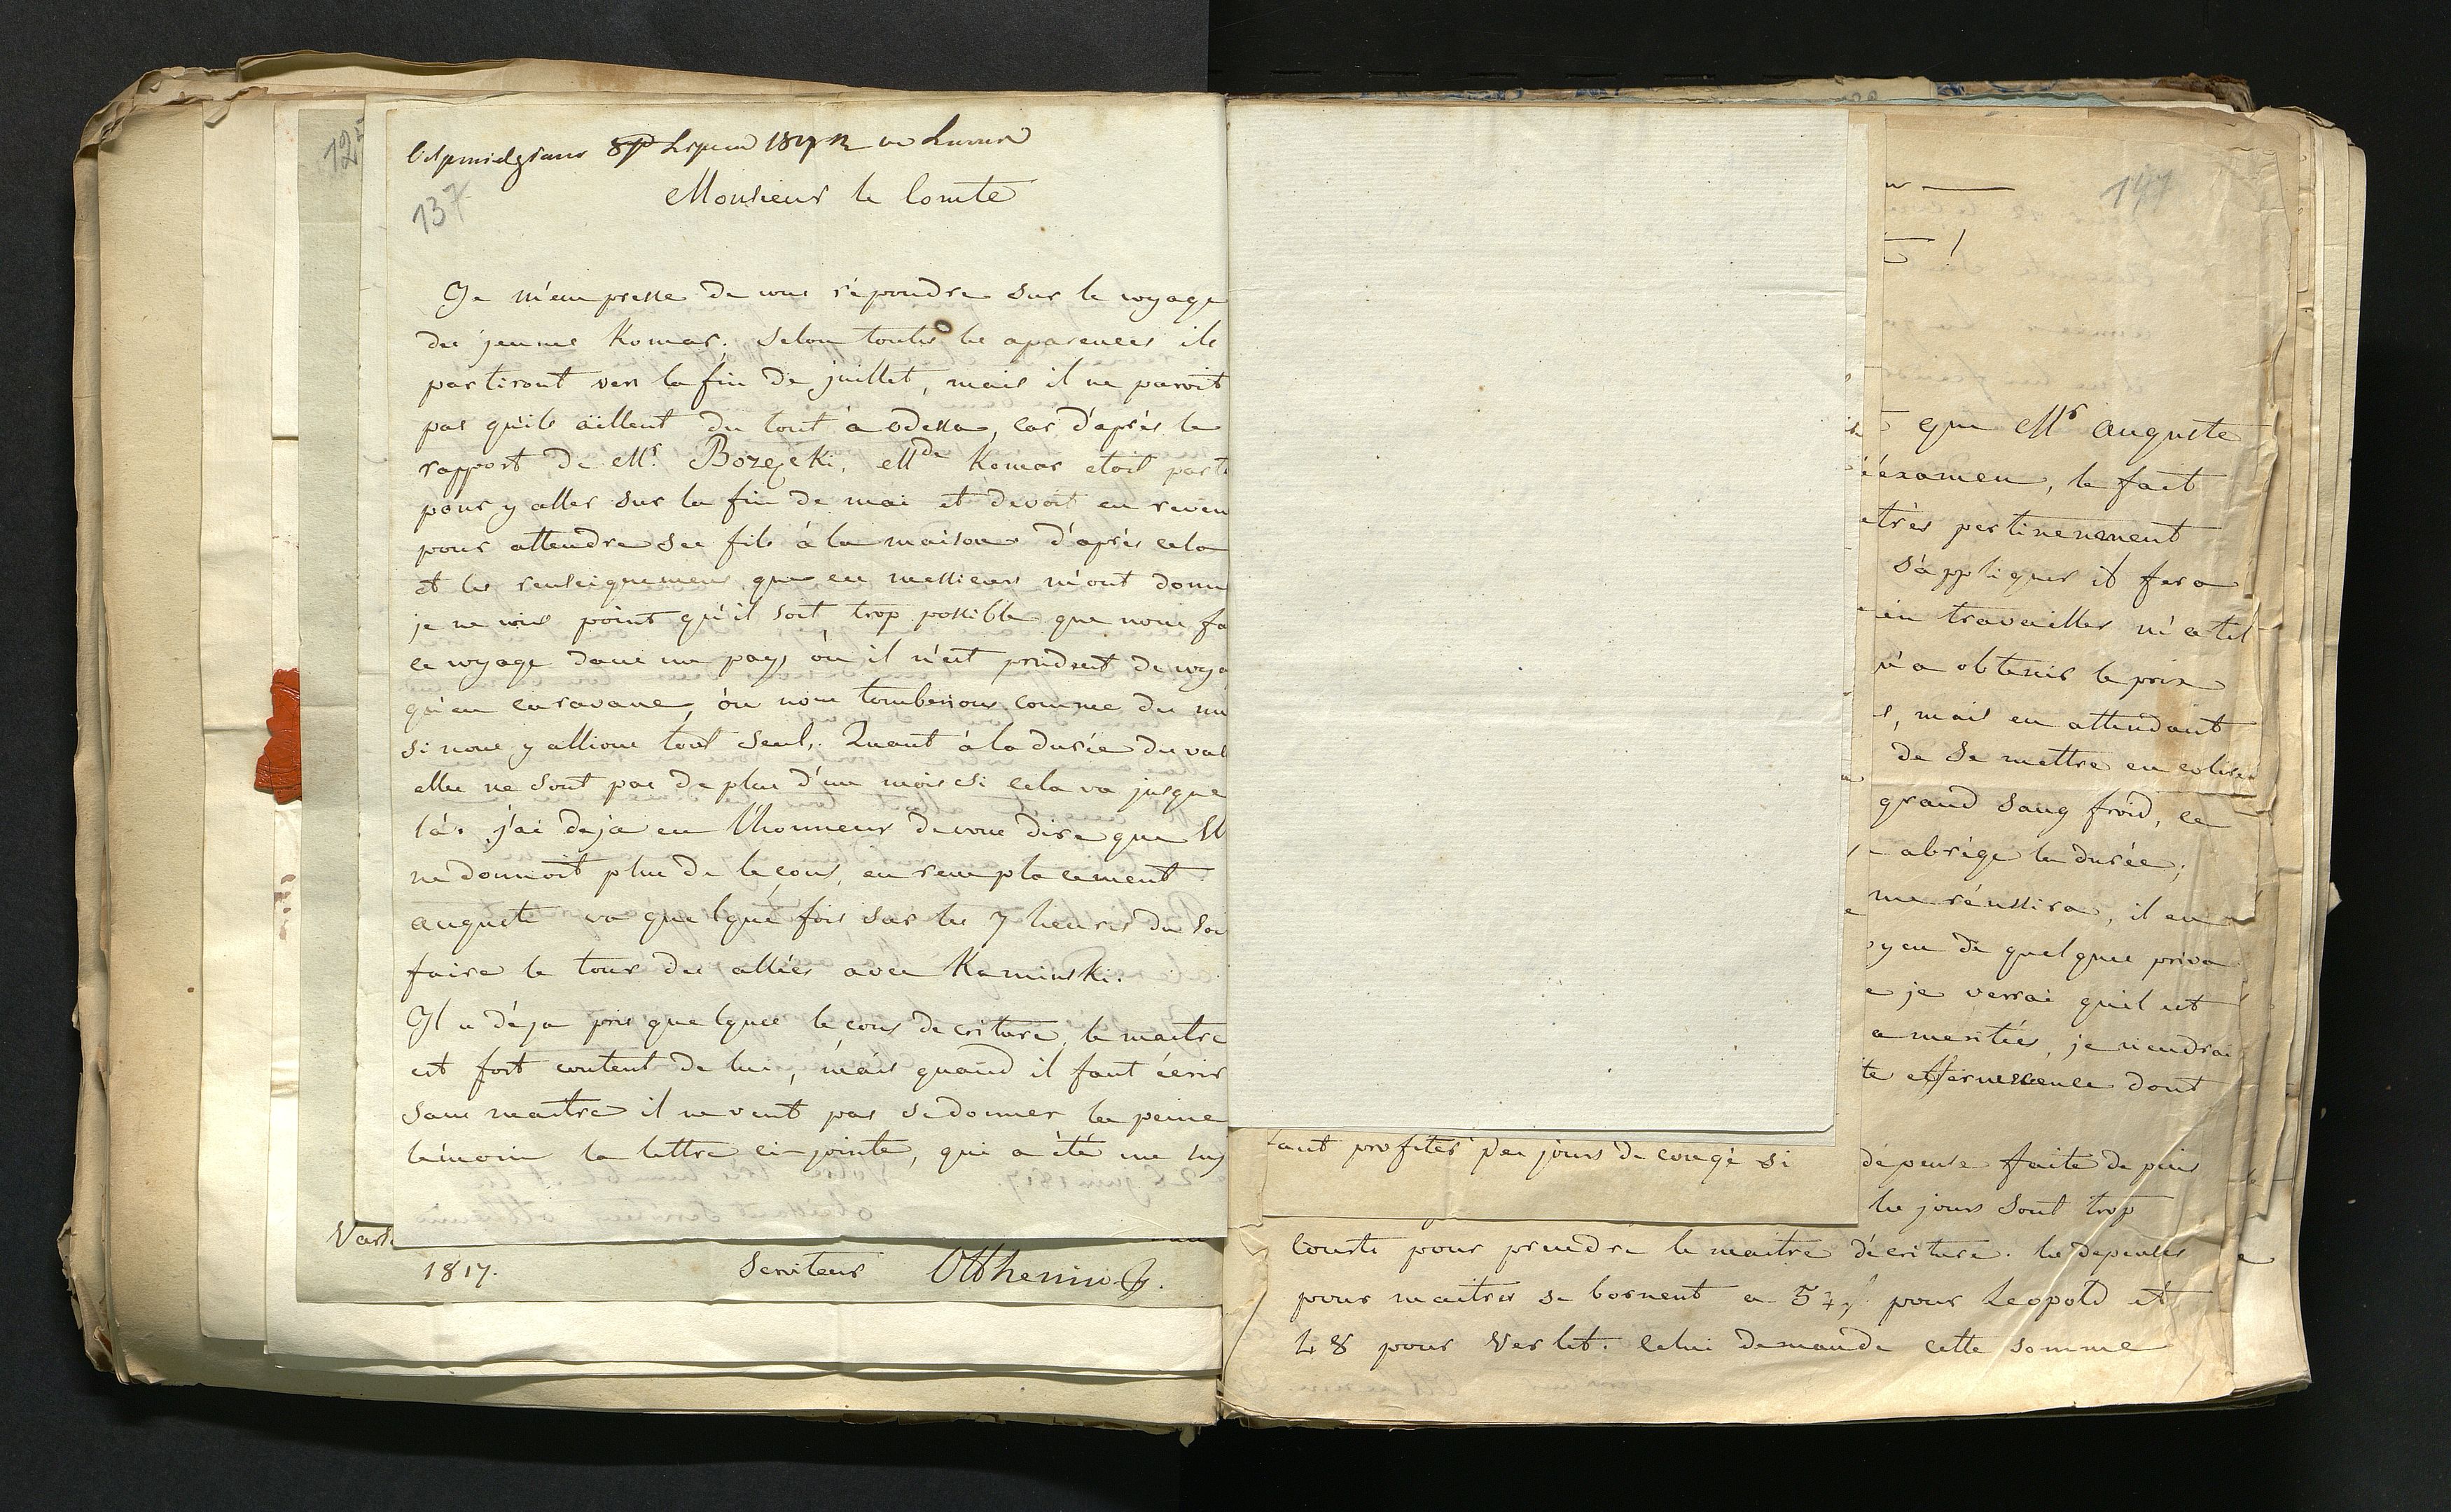 137
Monsieur le Comte
Je m'empresse de vous répondre sur le voyage
des jeunes Komar. Selon toutes les aparences ils
partiront vers la fin de juillet, mais il ne paroit
pas qu'ils aillent du tout à odessa, car d'après le
rapport de Mr. Mde Komar etoit parti
pour y aller sur la fin de mai et devoit en reven
pour attendre ses fils à la maison d'après cela
et les renseignemens que ces messieurs m'ont donn
je ne vois point qu'il soit trop possible que nous fa
ce voyage dans un pays où il n'est prudent de voya
qu'en caravane, où nous tomberions comme des nu
si nous y allions tout seul. Quant à la durée du vac
elles ne sont pas de plus d'un mois si cela va jusque
là. j'ai deja eu l'honneur de vous dire que
ne donnoit plus de leçons, en remplacement
auguste va quelque fois sur les 7 heures du soi
faire le tour des allées avec Kaminski.
Il a déja pris quelques leçons decriture, le maitre
est fort content de lui, mais quand il faut écrir
sans maitre il ne veut pas se donner la peine
témoin la lettre ci-jointe, qui a été
Vars
1817. Serviteur Otthenin
147
que Mr auguste
éxamen, le fait
très pertinemment
s'appliquer il fera
travailler
n'a obtenir le prix
, mais en attendant
de se mettre en
grand sang froid, ce
abrège la durée,
me réussira, il en
yen de quelques priva
e je verrai quil est
a meritées, je
te effervescence dont
tant profiter des jours de congé si
dépense faite depuis
les jours sont trop
courts pour prendre le maitre décriture. les depenses
pour maitres se bornent a 54 pour Leopold et
48 pour Verlet. celui demande cette somme